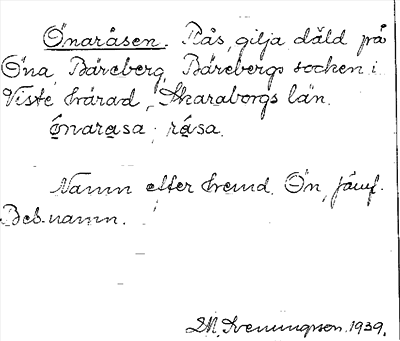 Önaråsen. Rås, gilja däld på
Öna, Bäreberg, Bärebergs socken i
Viste härad, Skaraborgs län.
ǫ̈narasa, råsa.
Namn efter hemd. Ön, jämf.
Beb.namn.
1939.